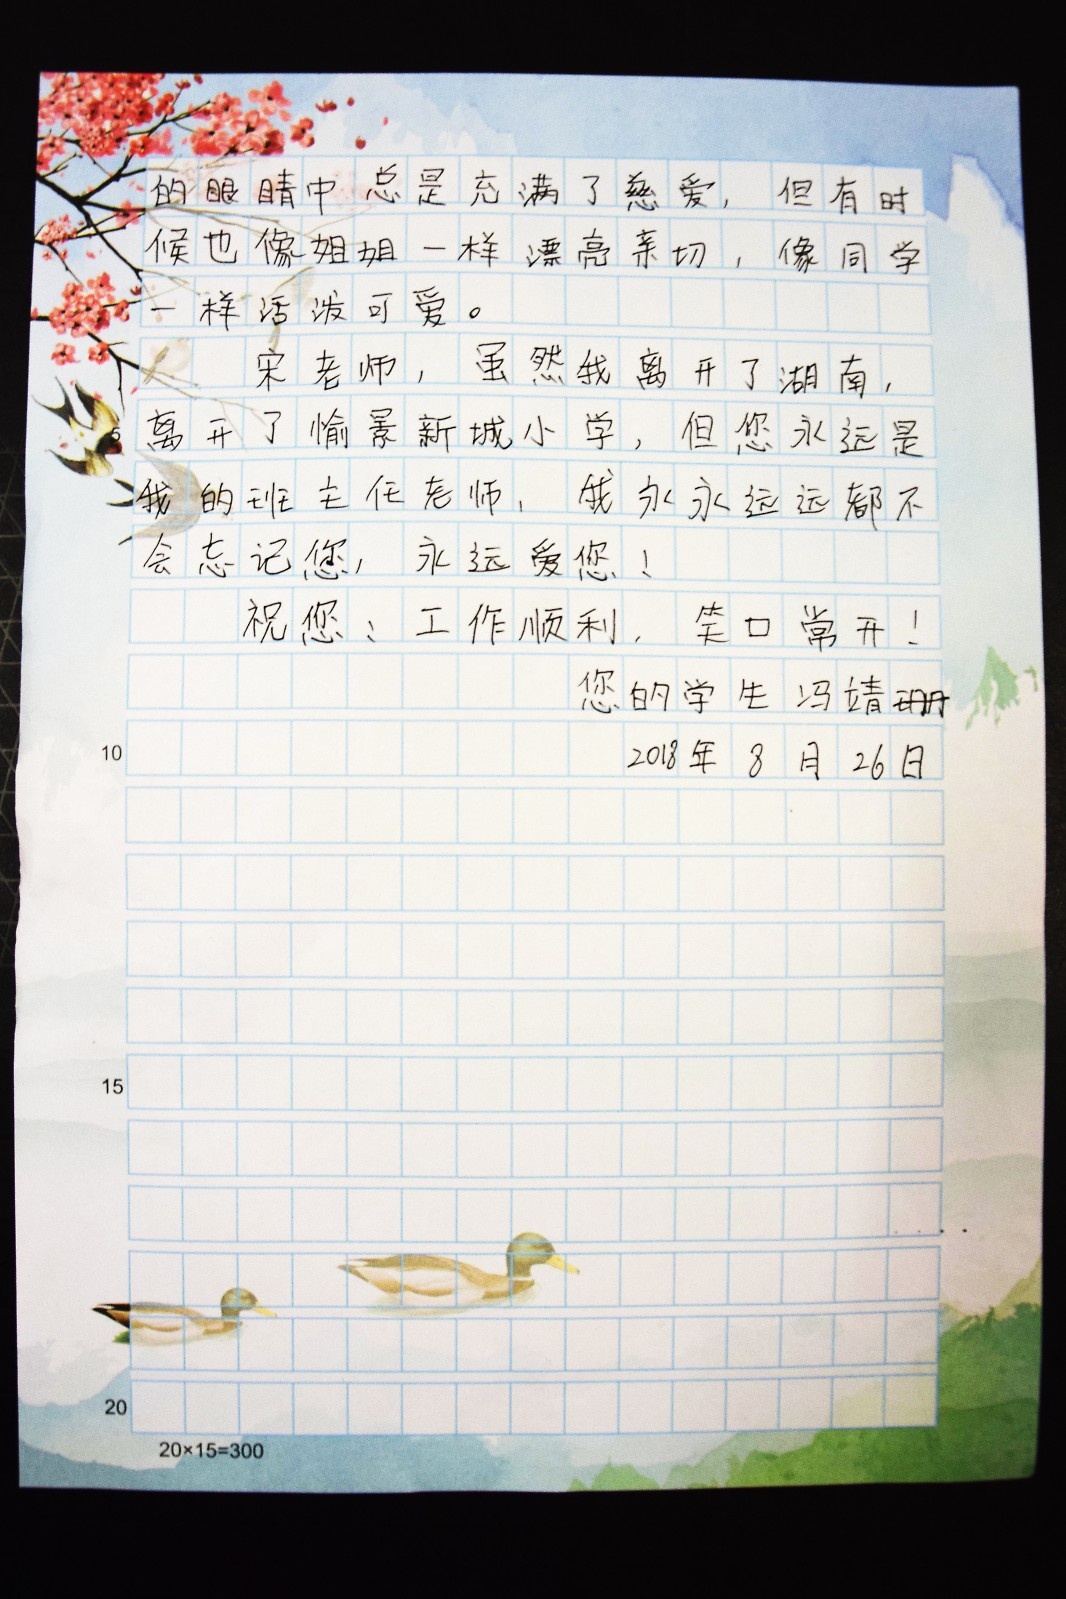 的眼睛中总是充满了慈爱，但有时
候也像姐姐一样漂亮亲切，像同学
一样活泼可爱。
宋老师，虽然我离开了湖南，
5
离开了愉景新城小学，但您永远是
我的班主任老师，我永永远远都不
会忘记您，永远爱您！
祝您：工作顺利，笑口常开！
您的学生冯靖珊
10
2018年8月26日
15
20
20×15=300